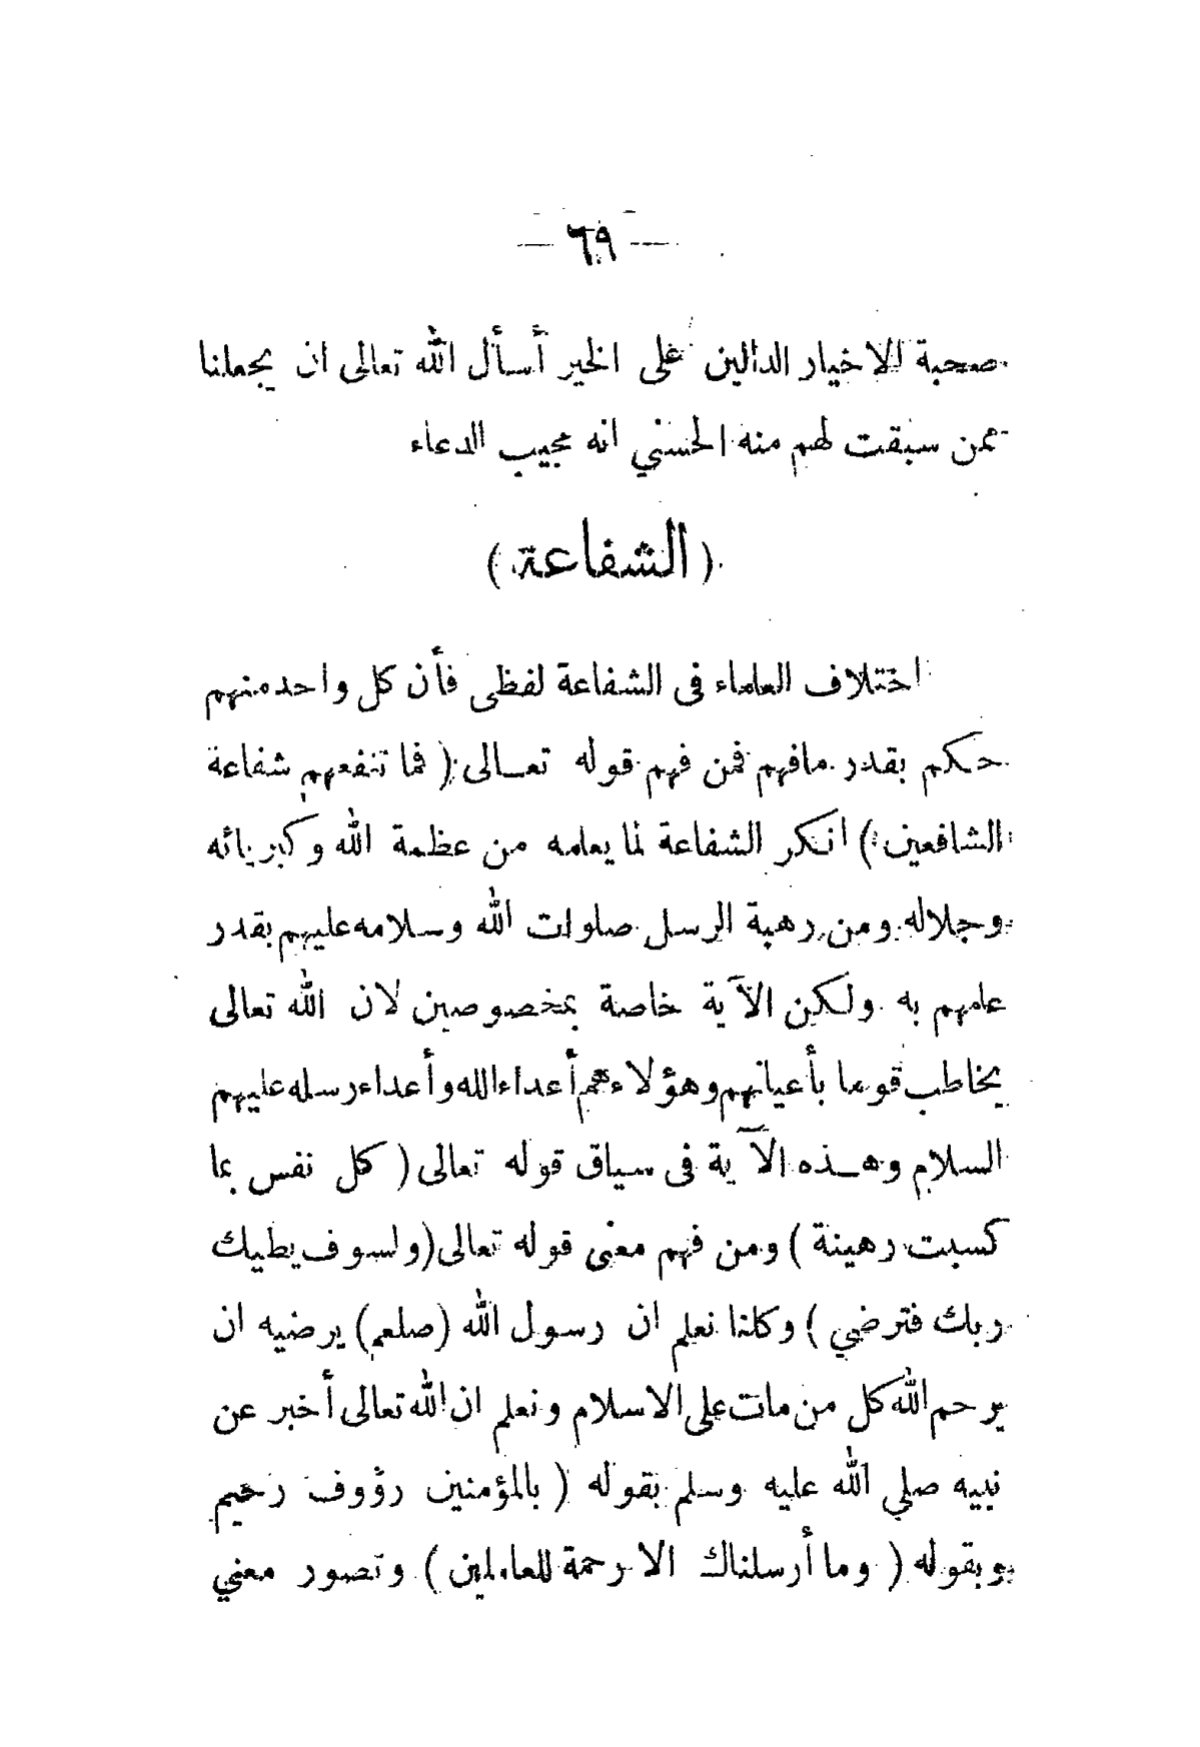 — ٦٩ —
صحبة الاخيار الدالين على الخير أسأل الله تعالى ان يجعلنا
ممن سبقت لهم منه الحسني انه مجيب الدعاء
( الشفاعة )
اختلاف العلماء فى الشفاعة لفظى فأن كل واحد منهم
حكم بقدر مافهم فمن فهم قوله تعالى ( فما تنفعهم شفاعة
الشافعين ) انكر الشفاعة لما يعلمه من عظمة الله وكبريائه
وجلاله ومن رهبة الرسل صلوات الله وسلامه عليهم بقدر
علمهم به ولكن الآية خاصة بمخصوصين لان الله تعالى
يخاطب قوما بأعيانهم وهؤلاء هم أعداء الله وأعداء رسله عليهم
السلام وهذه الآية فى سياق قوله تعالى ( كل نفس بما
كسبت رهينة ) ومن فهم معنى قوله تعالى ( ولسوف يطيك
ربك فترضي ) وكلنا نعلم ان رسول الله (صلعم) يرضيه ان
يرحم الله كل من مات على الاسلام ونعلم ان الله تعالى أخبر عن
نبيه صلي الله عليه وسلم بقوله ( بالمؤمنين رؤوف رحيم
وبقوله ( وما أرسلناك الا رحمة للعاملين ) وتصور معني